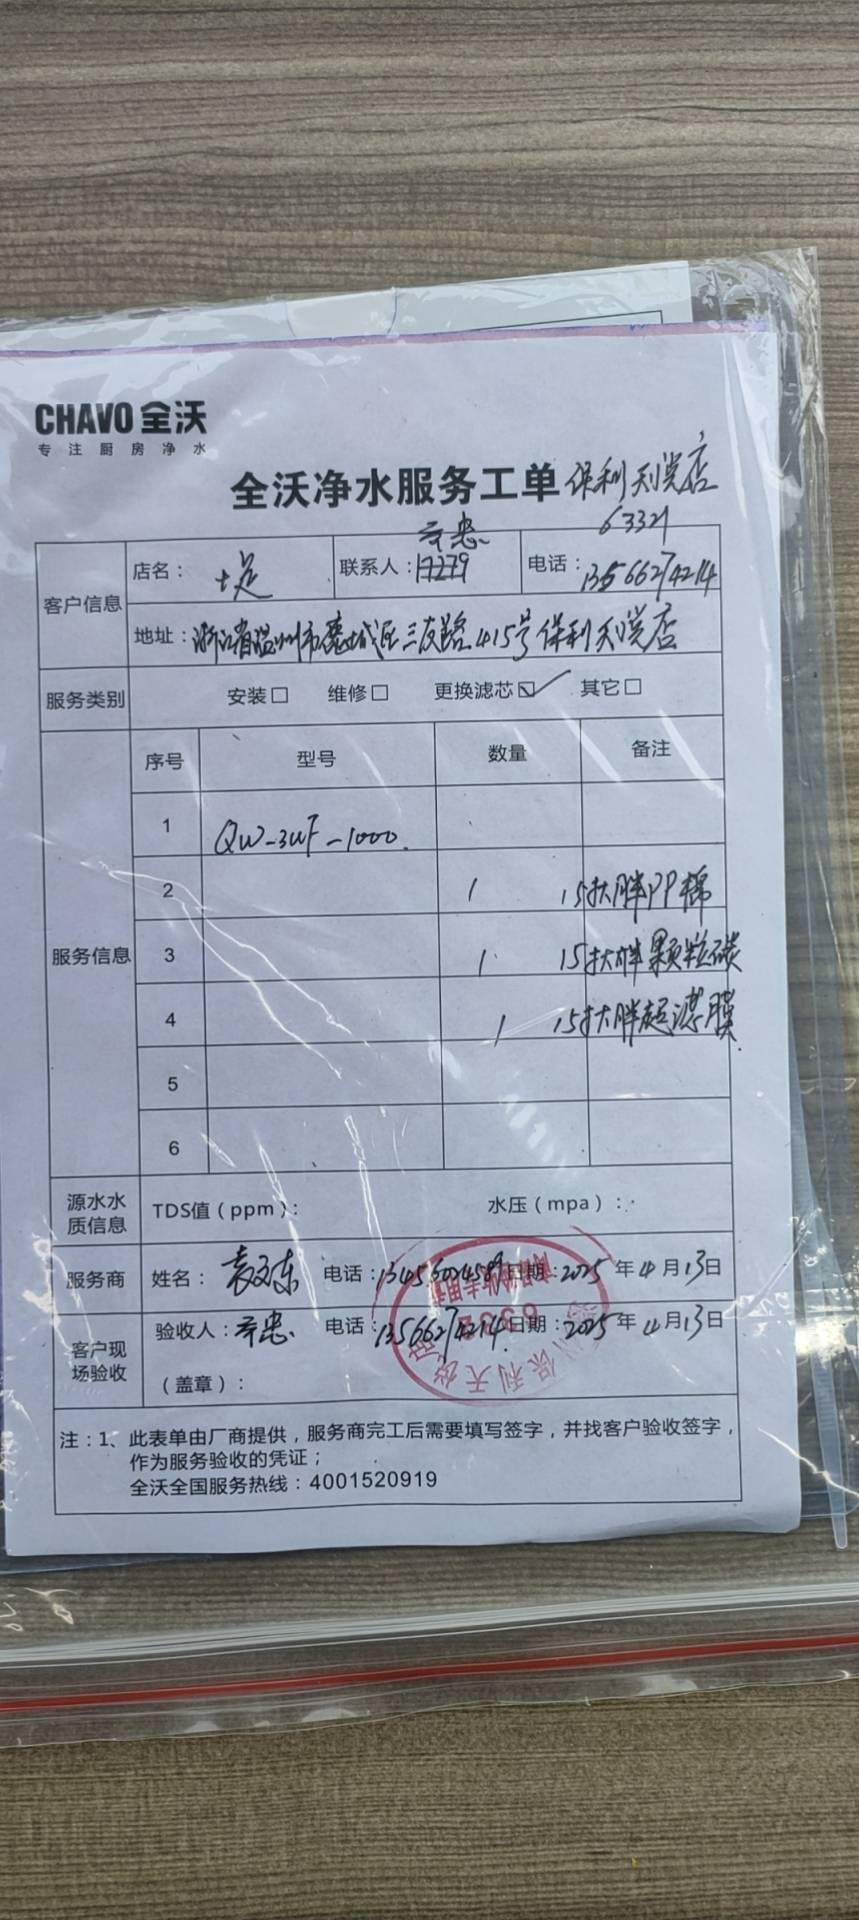 CHAVO 全沃
专注厨房净水
全沃净水服务工单 保利天悦店
63321
客户信息
店名：
联系人：
电话：13566274214
地址：浙江省温州市鹿城区三友路415号保利天悦店
服务类别 安装□ 维修□ 更换滤芯☑ 其它□
服务信息
序号 型号 数量 备注
1 QW-3UF-1000.
2 1 15寸大胖PP棉
3 1 15寸大胖颗粒碳
4 1 15寸大胖超滤膜
5
6
源水水质信息 TDS值（ppm）： 水压（mpa）：
服务商 姓名：袁文东 电话： 日期：2025年4月13日
客户现场验收 验收人： 电话：13566274214 日期：2025年4月13日
（盖章）：
保利天悦
注：1、此表单由厂商提供，服务商完工后需要填写签字，并找客户验收签字，
作为服务验收的凭证；
全沃全国服务热线：4001520919